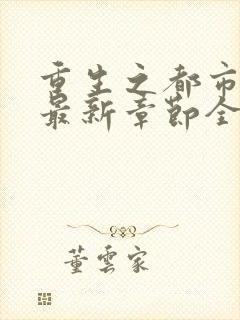 重生之都市
最新章节全
董云家